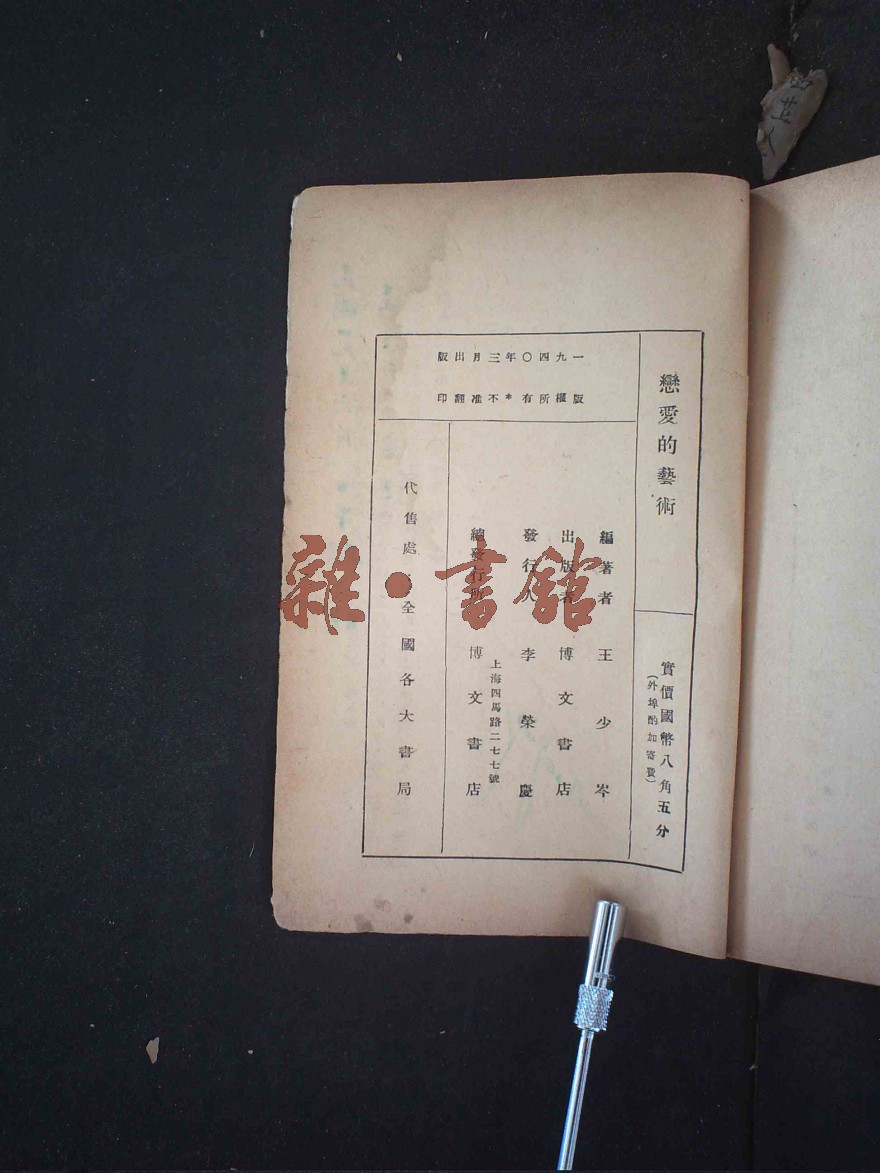 戀愛的藝術
實價國幣八角五分
(外埠酌加寄費)
一九四〇年三月出版
版權所有*不准翻印
編著者 王少岑
出版者 博文書店
發行人 李榮慶
上海四馬路二七七號
總發行所 博文書店
代售處：全國各大書局
雜•書館